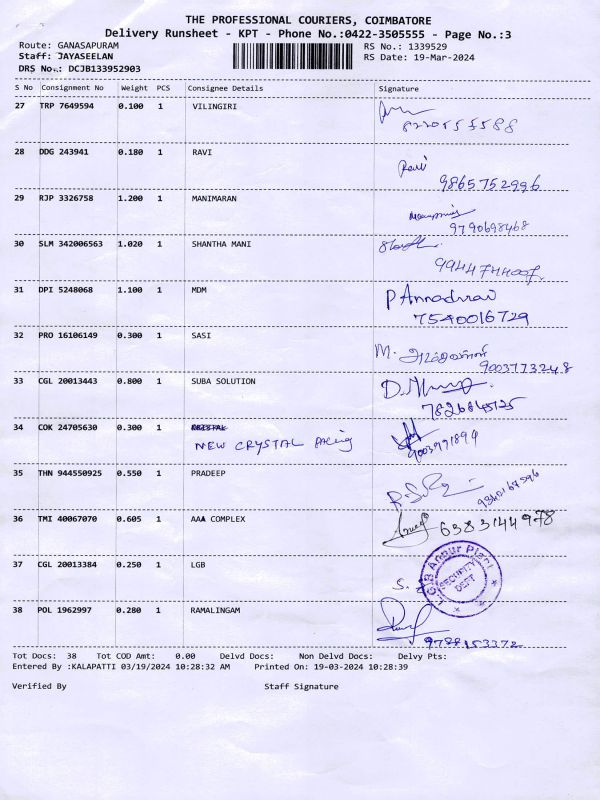 THE PROFESSIONAL COURIERS, COIMBATORE
Delivery Runsheet - KPT - Phone No.:0422-3505555 - Page No.:3
Route: GANASAPURAM RS No.: 1339529
Staff: JAYASEELAN RS Date: 19-Mar-2024
DRS No.: DCJB133952903
S No Consignment No Weight PCS Consignee Details Signature
27 TRP 7649594 0.100 1 VILINGIRI
8220555588
28 DDG 243941 0.180 1 RAVI Ravi
9865752996
29 RJP 3326758 1.200 1 MANIMARAN
9790698468
30 SLM 342006563 1.020 1 SHANTHA MANI
31 DPI 5248068 1.100 1 MDM P Annadurai
7540016729
32 PRO 16106149 0.300 1 SASI M.
9003773248
33 CGL 20013443 0.800 1 SUBA SOLUTION
34 COK 24705630 0.300 1
NEW CRYSTAL
35 THN 944550925 0.550 1 PRADEEP
36 TMI 40067070 0.605 1 AAA COMPLEX 6383144978
37 CGL 20013384 0.250 1 LGB S.
SECURITY
DEPT
38 POL 1962997 0.280 1 RAMALINGAM
9788153372
Tot Docs: 38 Tot COD Amt: 0.00 Delvd Docs: Non Delvd Docs: Delvy Pts:
Entered By :KALAPATTI 03/19/2024 10:28:32 AM Printed On: 19-03-2024 10:28:39
Verified By Staff Signature